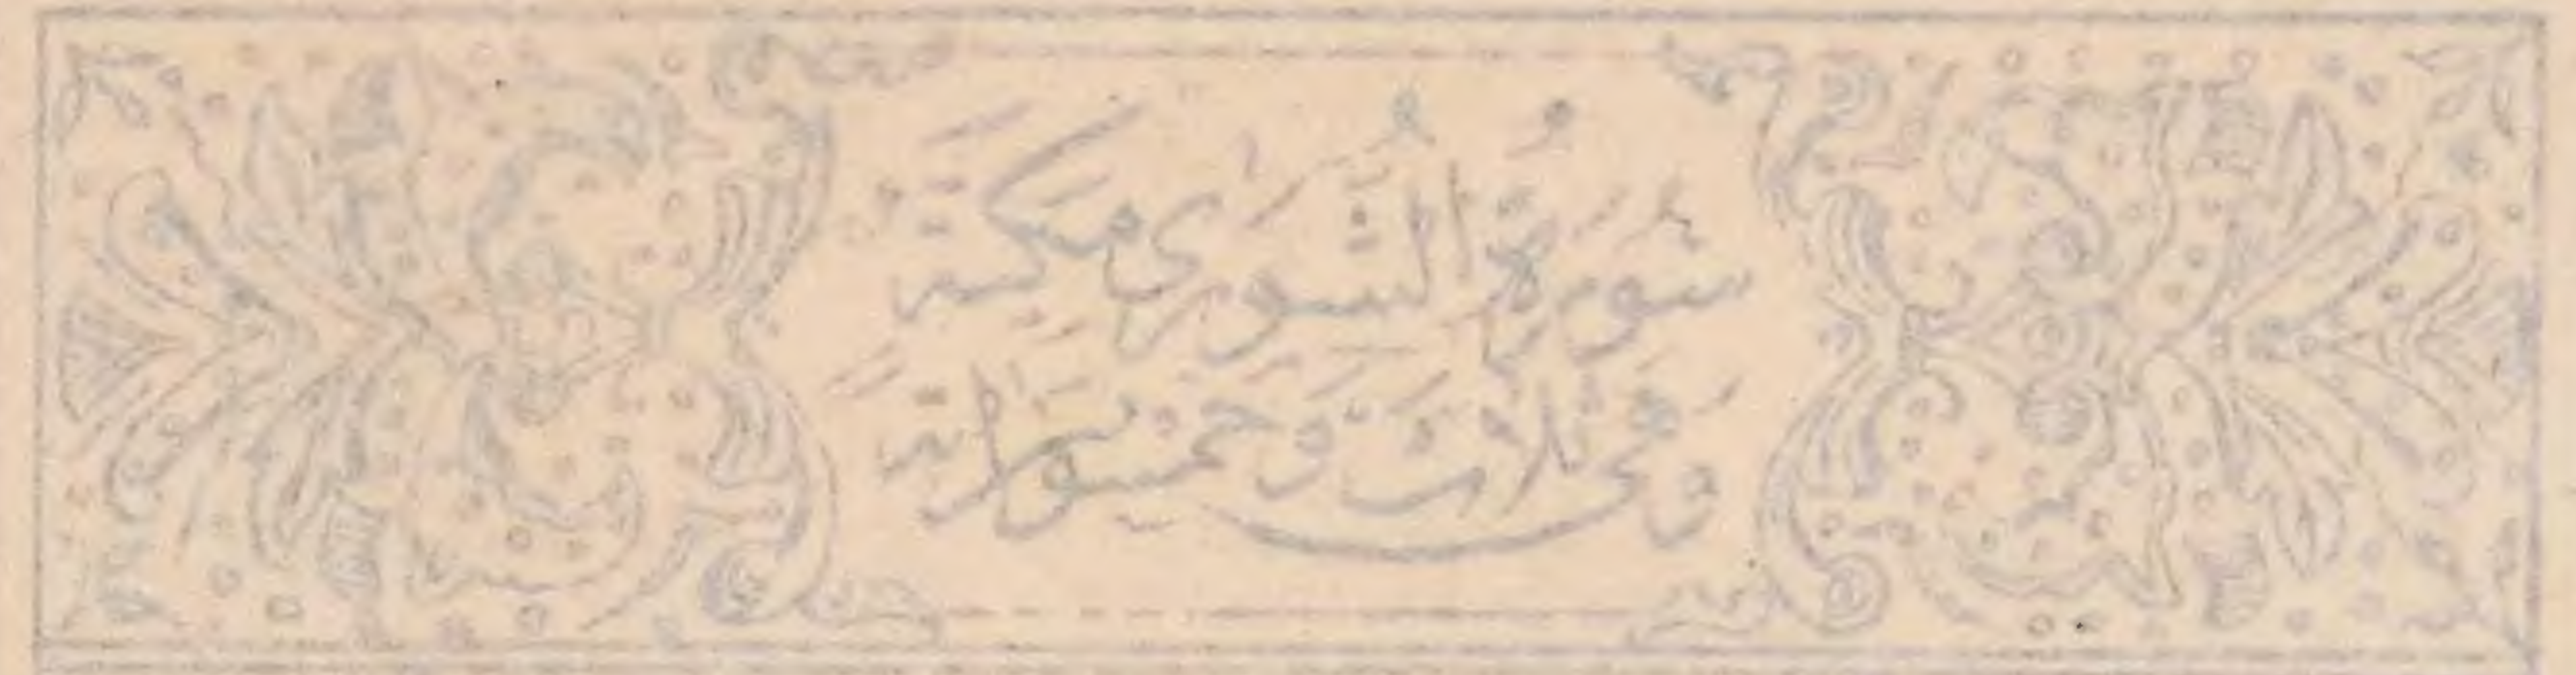 سُورَةُ الشُّورىٰ مَكِّيَّةٌ
وَهِيَ ثَلَاثٌ وَخَمْسُونَ اٰيَةً